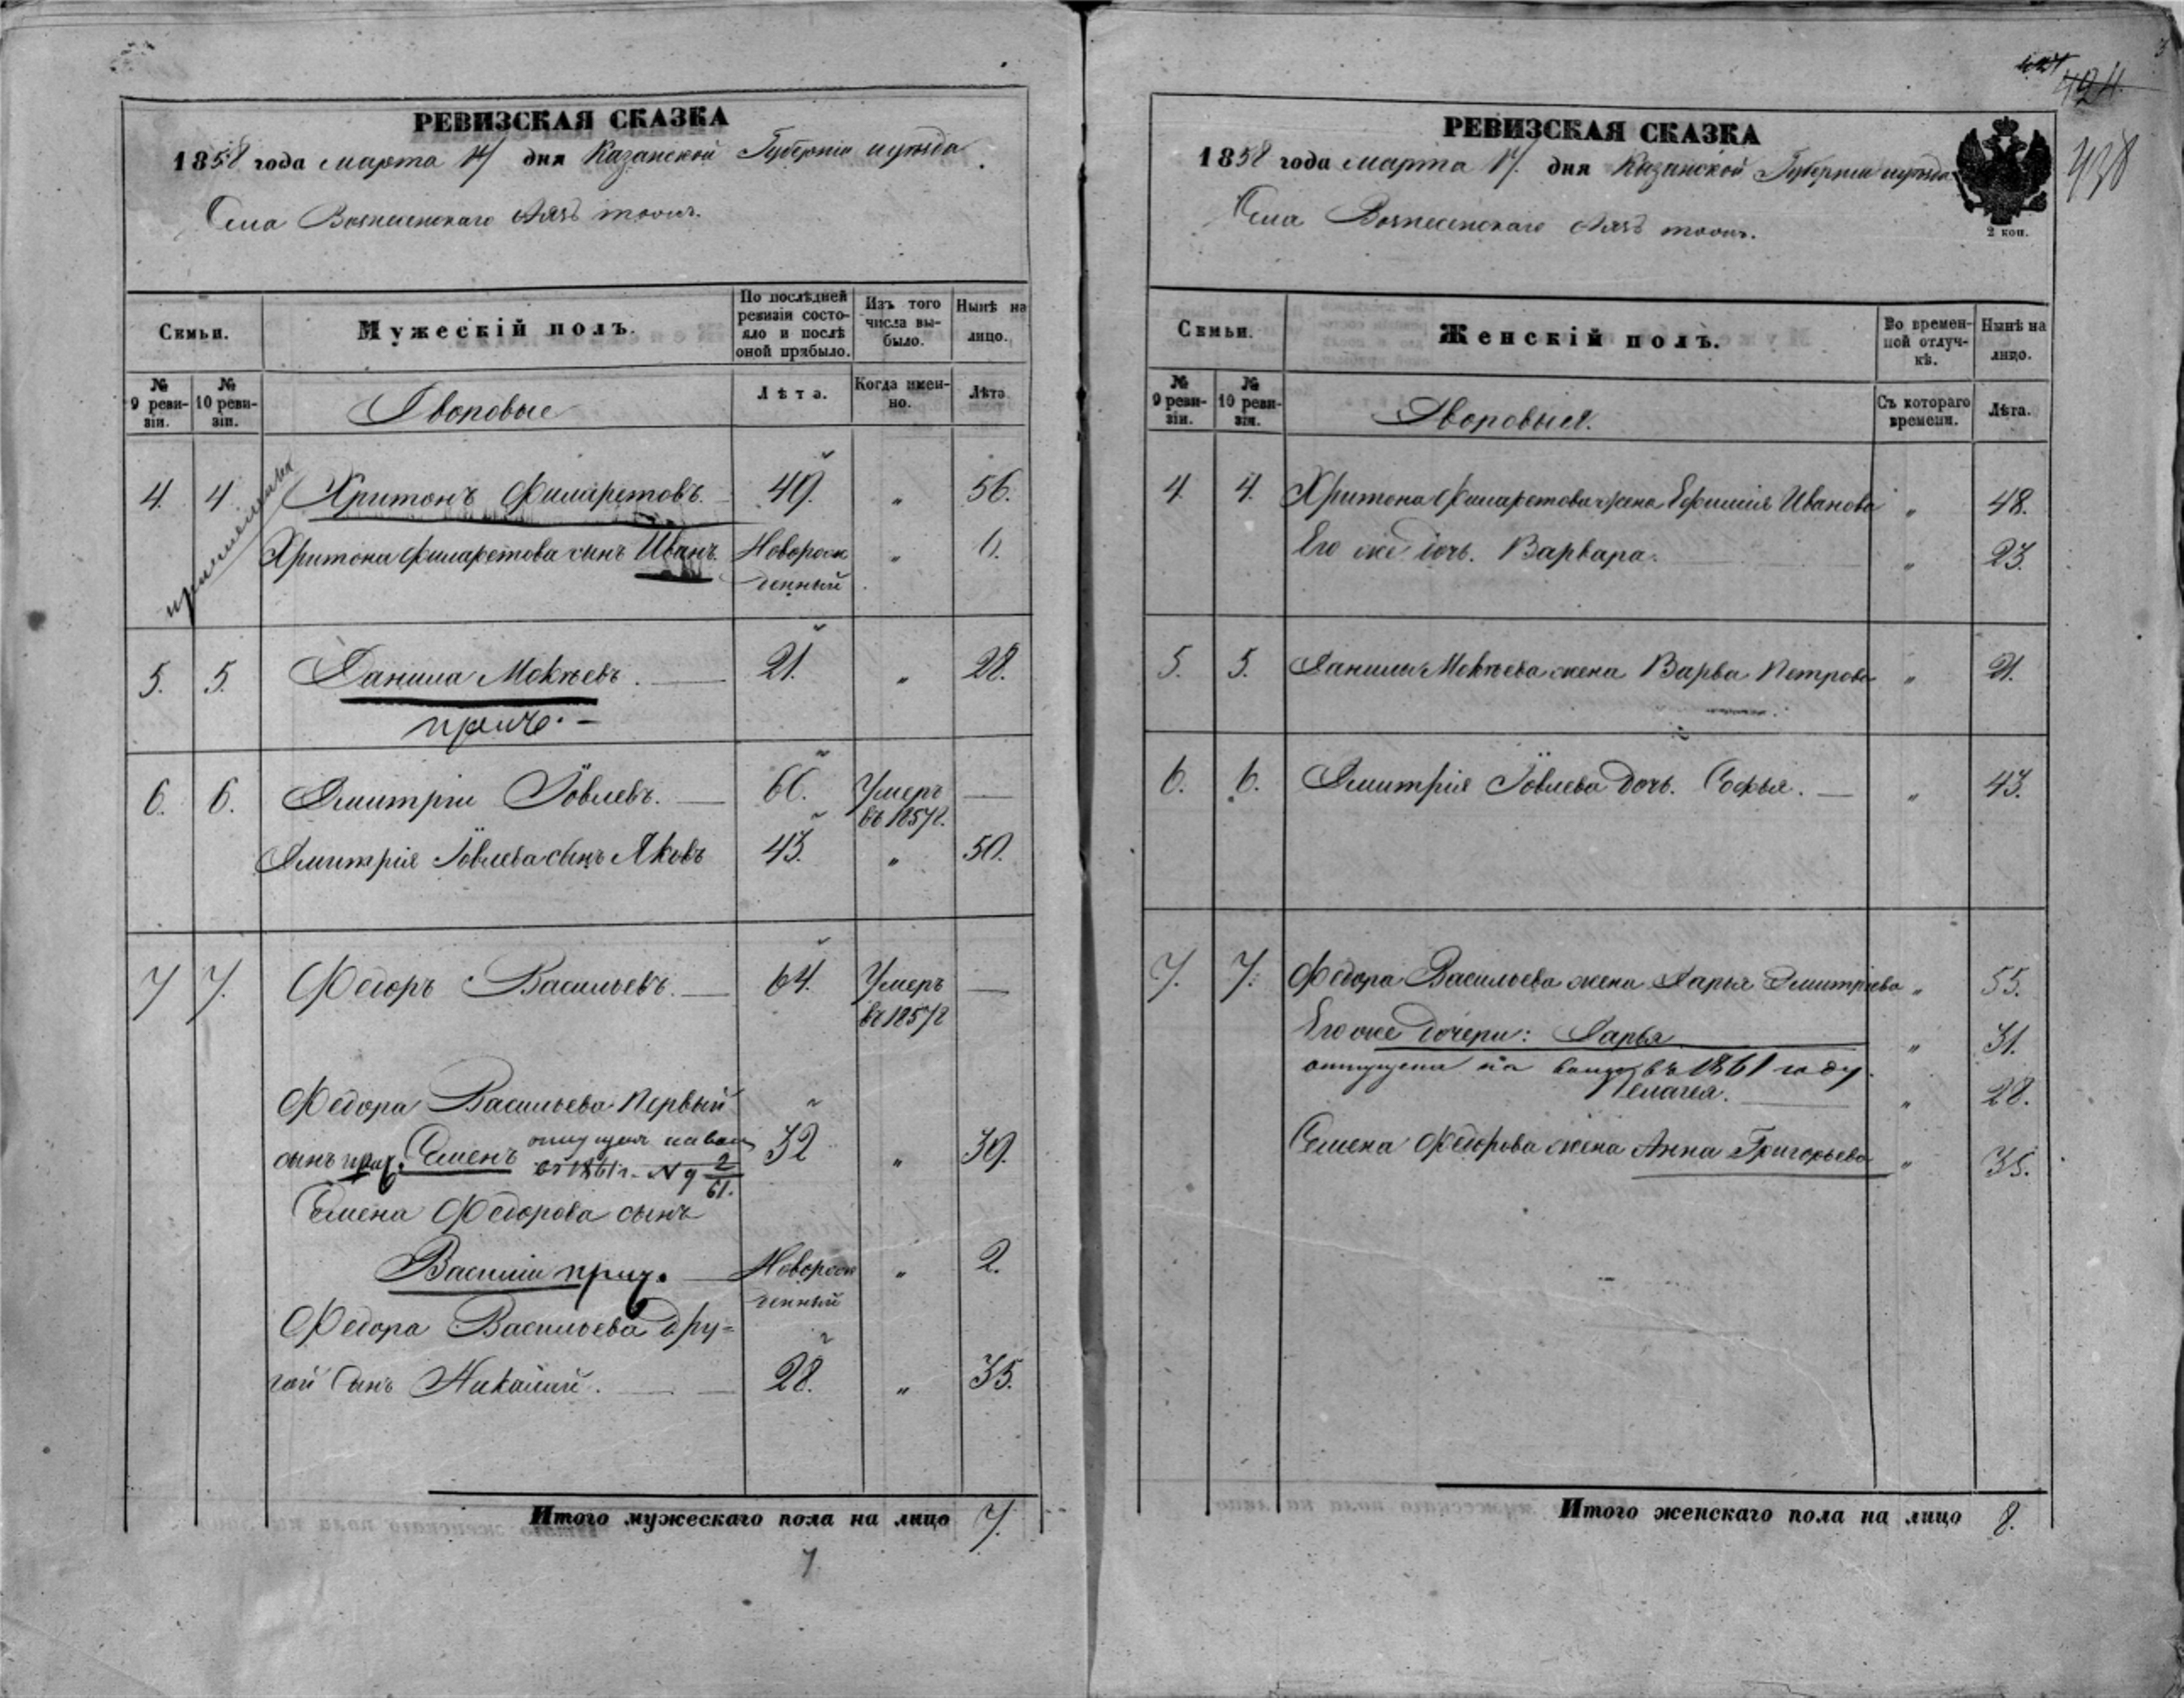 РЕВИЗСКАЯ СКАЗКА
1858 года марта 17 дня Казанской Губернiи уѣзда
Села Вознесенскаго тожъ.
Семьи.
Мужескій полъ.
По послѣдней ревизіи состояло и послѣ оной прибыло.
Изъ того числа выбыло.
Нынѣ на лицо.
№ 9 ревизіи.
№ 10 ревизіи.
Дворовые
Лѣта.
Когда именно.
Лѣта
4. 4 Харитонъ Филаретовъ. 49. „ 56.
Харитона Филаретова сынъ Иванъ. Новорож „
денный
5. 5. Данила Мокѣевъ. 21. „ 28.
прич. –
6. 6. Дмитрiй Iовлевъ. 66. Умеръ —
въ 1857г.
Дмитрiя Iовлева сынъ Яковъ 43. „ 50.
7 7. Ѳедоръ Васильевъ. 64. Умеръ —
въ 1857г
Ѳедора Васильева первый
отпущен на вол
сынъ прич. Семенъ 32 „ 39.
въ 1861 г. № 9 2/61.
Семена Ѳедорова сынъ
Василiй прич. Новорож „ 2.
денный
Ѳедора Васильева дру=
гой сынъ Николай. 28. „ 35.
Итого мужескаго пола на лицо 7.
7.
424.
438
РЕВИЗСКАЯ СКАЗКА
1858 года марта 17. дня Казанской Губернiи уѣзда
2 коп.
Села Вознесенскаго тожъ.
Семьи.
Женскій полъ.
Во временной отлучкѣ.
Нынѣ на лицо.
№ 9 ревизіи.
№ 10 ревизіи.
Дворовыя.
Съ котораго времени.
Лѣта.
4. 4. Харитона Филаретова жена Ефимiя Иванова „ 48.
Его же дочь. Варвара. „ 23.
5. 5. Данилы Мокѣева жена Варва Петрова „ 21.
6. 6. Дмитрiя Iовлева дочь. Софья. — „ 43.
7. 7. Ѳедора Васильева жена Дарья Дмитрiева „ 55.
Его же дочери: Дарья „ 31.
отпущена на волю въ 1861 году.
Пелагея. „ 28.
Семена Ѳедорова жена Анна Григорьева „ 35.
Итого женскаго пола на лицо 8.